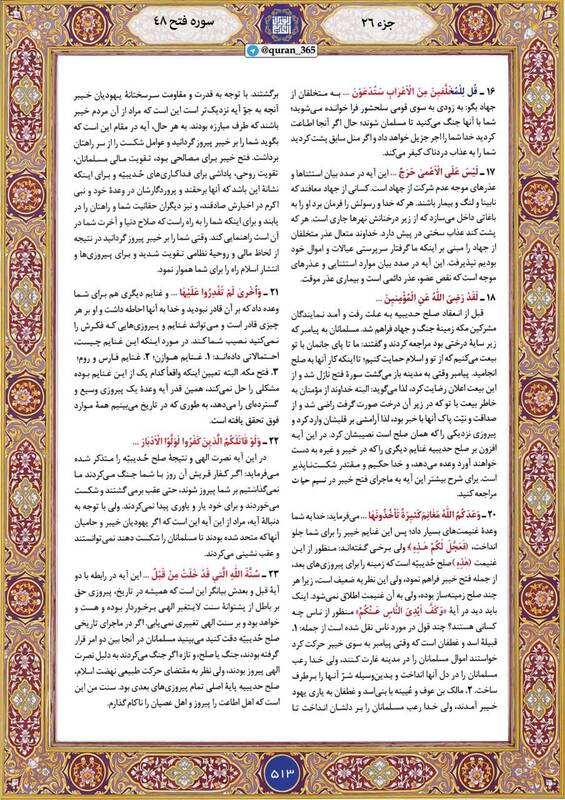 جزء ۲۶
سوره فتح ۴۸
@quran_365
۱۶ ـ قُل لِلْمُخَلَّفِینَ مِنَ الْأَعْرَابِ سَتُدْعَوْنَ ... به متخلفان از
جهاد بگو: به زودی به سوی قومی سلحشور فرا خوانده می‌شوید؛
شما با آنها جنگ می‌کنید تا مسلمان شوند؛ حال اگر آنجا اطاعت
کردید خدا شما را اجر جزیل خواهد داد و اگر مثل سابق پشت کردید
شما را به عذاب دردناک کیفر می‌کند.
۱۷ ـ لَیْسَ عَلَی الْأَعْمَیٰ حَرَجٌ ... این آیه در صدد بیان استثناها و
عذرهای موجه عدم شرکت از جهاد است. کسانی از جهاد معافند که
نابینا و لنگ و بیمار باشند. هر که خدا و رسولش را فرمان برد او را به
باغاتی داخل می‌سازد که از زیر درختانش نهرها جاری است. هر که
پشت کند عذاب سختی در پیش دارد. خداوند متعال عذر متخلفان
از جهاد را مبنی بر اینکه ما گرفتار سرپرستی عیالات و اموال خود
بودیم نپذیرفت. این آیه در صدد بیان موارد استثنایی و عذرهای
موجه است که نقص عضو، عذر دائمی است و بیماری عذر موقت.
۱۸ ـ لَقَدْ رَضِیَ اللَّهُ عَنِ الْمُؤْمِنِینَ ...
قبل از انعقاد صلح حدیبیه به علت رفت و آمد نمایندگان
مشرکین مکه زمینهٔ جنگ و جهاد فراهم شد. مسلمانان به پیامبر که
زیر سایهٔ درختی بود مراجعه کردند و گفتند: ما تا پای جانمان با تو
بیعت می‌کنیم که از تو و اسلام حمایت کنیم؛ تا اینکه کار آنها به صلح
انجامید. پیامبر وقتی به مدینه باز می‌گشت سورهٔ فتح نازل شد و از
این بیعت اعلان رضایت کرد، لذا می‌گوید: البته خداوند از مؤمنان به
خاطر بیعت با تو که در زیر آن درخت صورت گرفت راضی شد و از
صداقت و نیّت پاک آنها با خبر بود، لذا آرامشی بر قلبشان وارد کرد و
پیروزی نزدیکی را که همان صلح است نصیبشان کرد. در این آیه
افزون بر صلح حدیبیه غنایم دیگری را که در خیبر و غیره به دست
خواهند آورد وعده می‌دهد، و خدا حکیم و مقتدر شکست‌ناپذیر
است. برای شرح بیشتر این آیه به ماجرای فتح خیبر در نسیم حیات
مراجعه کنید.
۲۰ ـ وَعَدَکُمُ اللَّهُ مَغَانِمَ کَثِیرَةً تَأْخُذُونَهَا ... می‌فرماید: خدا به شما
وعدهٔ غنیمت‌های بسیار داد؛ پس این غنایم خیبر را برای شما جلو
انداخت، ﴿فَعَجَّلَ لَکُمْ هَٰذِهِ﴾ ولی برخی گفته‌اند: منظور از این
غنیمت ﴿هَٰذِهِ﴾ صلح حدیبیّه است که زمینه را برای پیروزی‌های بعد،
از جمله فتح خیبر فراهم نمود، ولی این نظریه ضعیف است، زیرا هر
چند صلح زمینه‌ساز بوده، ولی به آن غنیمت اطلاق نمی‌شود. اینک
باید دید در آیهٔ ﴿وَکَفَّ أَیْدِیَ النَّاسِ عَنکُمْ﴾ منظور از ناس چه
کسانی هستند؟ چند قول در مورد ناس نقل شده است از جمله: ۱.
قبیلهٔ اسد و غطفان است که وقتی پیامبر به سوی خیبر حرکت کرد
خواستند اموال مسلمانان را در مدینه غارت کنند، ولی خدا رعب
مسلمانان را در دل آنها انداخت و بدین‌وسیله شرّ آنها را برطرف
ساخت. ۲. مالک بن عوف و عُیینه با بنی‌اسد و غطفان به یاری یهود
خیبر آمدند، ولی خدا رعب مسلمانان را بر دلشان انداخت تا
برگشتند. با توجه به قدرت و مقاومت سرسختانهٔ یهودیان خیبر
آنچه به جوّ آیه نزدیک‌تر است این است که مراد از آن مردم خیبر
باشند که طرف مبارزه بودند. به هر حال، آیه در مقام این است که
بگوید شما را بر خیبر پیروز گردانید و عوامل شکست را از سر راهتان
برداشت. فتح خیبر برای مصالحی بود، تقویت مالی مسلمانان،
تقویت روحی، پاداشی برای فداکاری‌های حُدیبیّه و برای اینکه
نشانهٔ این باشد که آنها برحقند و پروردگارشان در وعدهٔ خود و نبی
اکرم در اخبارش صادقند، و نیز دیگران حقانیت شما و راهتان را در
یابند و برای اینکه شما را به راه راست که صلاح دنیا و آخرت شما در
آن است راهنمایی کند. وقتی شما را بر خیبر پیروز گردانید در نتیجه
از لحاظ مالی و روحیهٔ نظامی تقویت شدید و برای پیروزی‌ها و
انتشار اسلام راه را برای شما هموار نمود.
۲۱ ـ وَأُخْرَیٰ لَمْ تَقْدِرُوا عَلَیْهَا ... و غنایم دیگری هم برای شما
وعده داد که بر آن قادر نبودید و خدا به آنها احاطه داشت و او بر هر
چیزی قادر است و می‌تواند غنایم و پیروزی‌هایی که فکرش را
نمی‌کنید نصیب شما کند. در مورد اینکه این غنایم چیست،
احتمالاتی داده‌اند: ۱. غنایم هوازن؛ ۲. غنایم فارس و روم؛
۳. فتح مکه. البته تعیین اینکه واقعاً کدام یک از این غنایم بوده
مشکلی را حل نمی‌کند، همین قدر آیه وعدهٔ یک پیروزی وسیع و
گسترده‌ای را می‌دهد، به طوری که در تاریخ می‌بینیم همهٔ موارد
فوق تحقق یافته است.
۲۲ ـ وَلَوْ قَاتَلَکُمُ الَّذِینَ کَفَرُوا لَوَلَّوُا الْأَدْبَارَ ...
در این آیه نصرت الهی و نتیجهٔ صلح حُدیبیّه را متذکر شده
می‌فرماید: اگر کفار قریش آن روز با شما جنگ می‌کردند ما
نمی‌گذاشتیم بر شما پیروز شوند، حتی عقب برمی گشتند و شکست
می‌خوردند و برای خود یار و یاوری پیدا نمی‌کردند. ولی با توجه به
دنبالهٔ آیه، مراد از این آیه این است که اگر یهودیان خیبر و حامیان
آنها که متحد شده بودند تا مسلمانان را شکست دهند نمی‌توانستند
و عقب نشینی می‌کردند.
۲۳ ـ سُنَّةَ اللَّهِ الَّتِی قَدْ خَلَتْ مِنْ قَبْلُ ... این آیه در رابطه با دو
آیهٔ قبل و بعدش بیانگر این است که همیشه در تاریخ، پیروزی حق
بر باطل از پشتوانهٔ سنت لایتغیر الهی برخوردار بوده و هست و
خواهد بود و بر سنت الهی تغییری نمی‌یابی. اگر در ماجرای تاریخی
صلح حُدیبیّه دقت کنید می‌بینید مسلمانان در آنجا بین دو امر قرار
گرفته بودند، جنگ یا صلح، و تازه اگر جنگ می‌کردند به دلیل نصرت
الهی پیروز بودند، ولی نظر به مقتضای حرکت طبیعی نهضت اسلام،
صلح حدیبیه پایهٔ اصلی تمام پیروزی‌های بعدی بود. سنت من این
است که اهل اطاعت را پیروز و اهل عصیان را ناکام گذارم.
۵۱۳